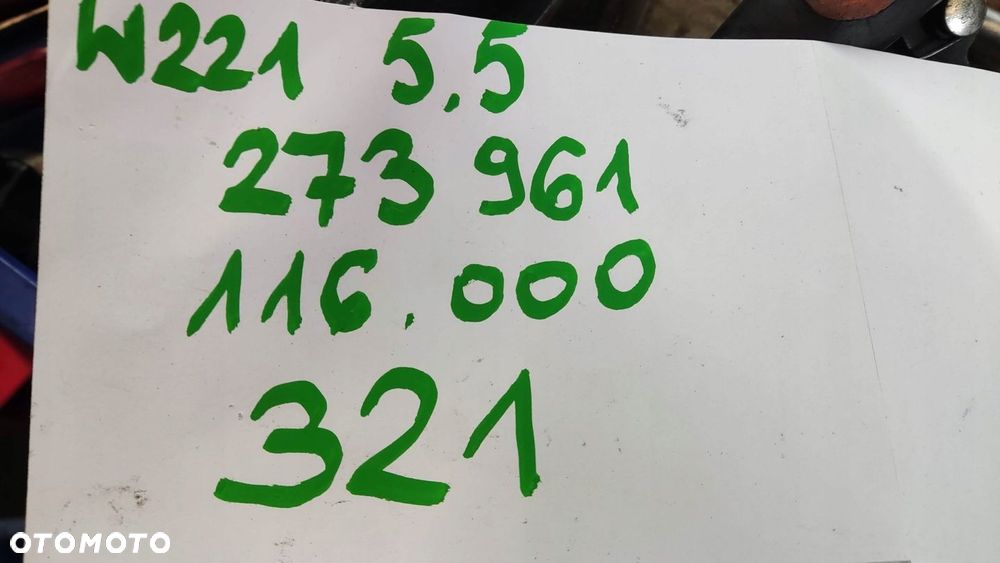 W221 5.5
273 961
116.000
321
OTOMOTO